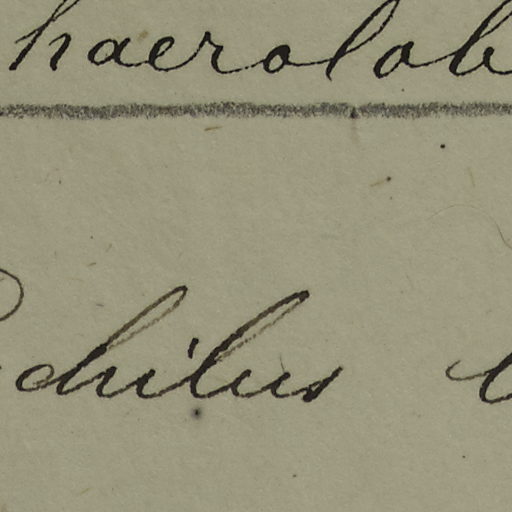 haerolob
chilus